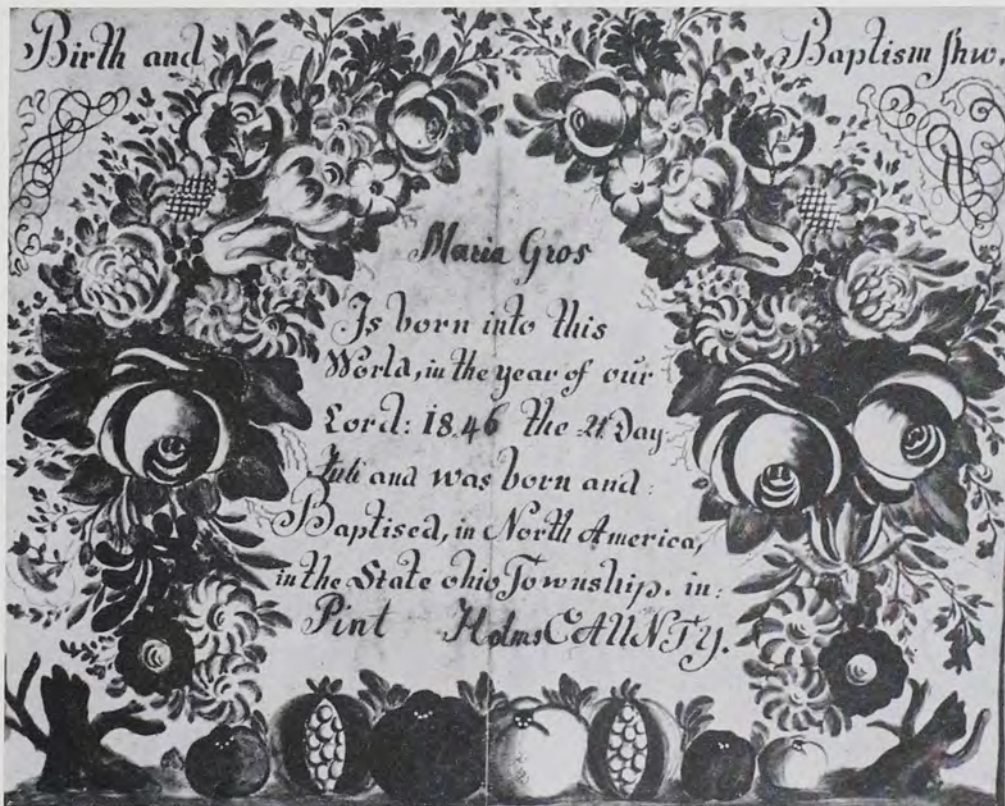 Birth and Baptism shw.
Maria Gros
Is born into this
World, in the year of our
Lord: 1846 the 21. Day
Juli and was born and:
Baptised, in North America,
in the State ohio Township. in:
Pint Holms CAUNTY.